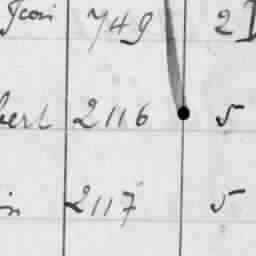 749 2
bert 2116 5
in 2117 5